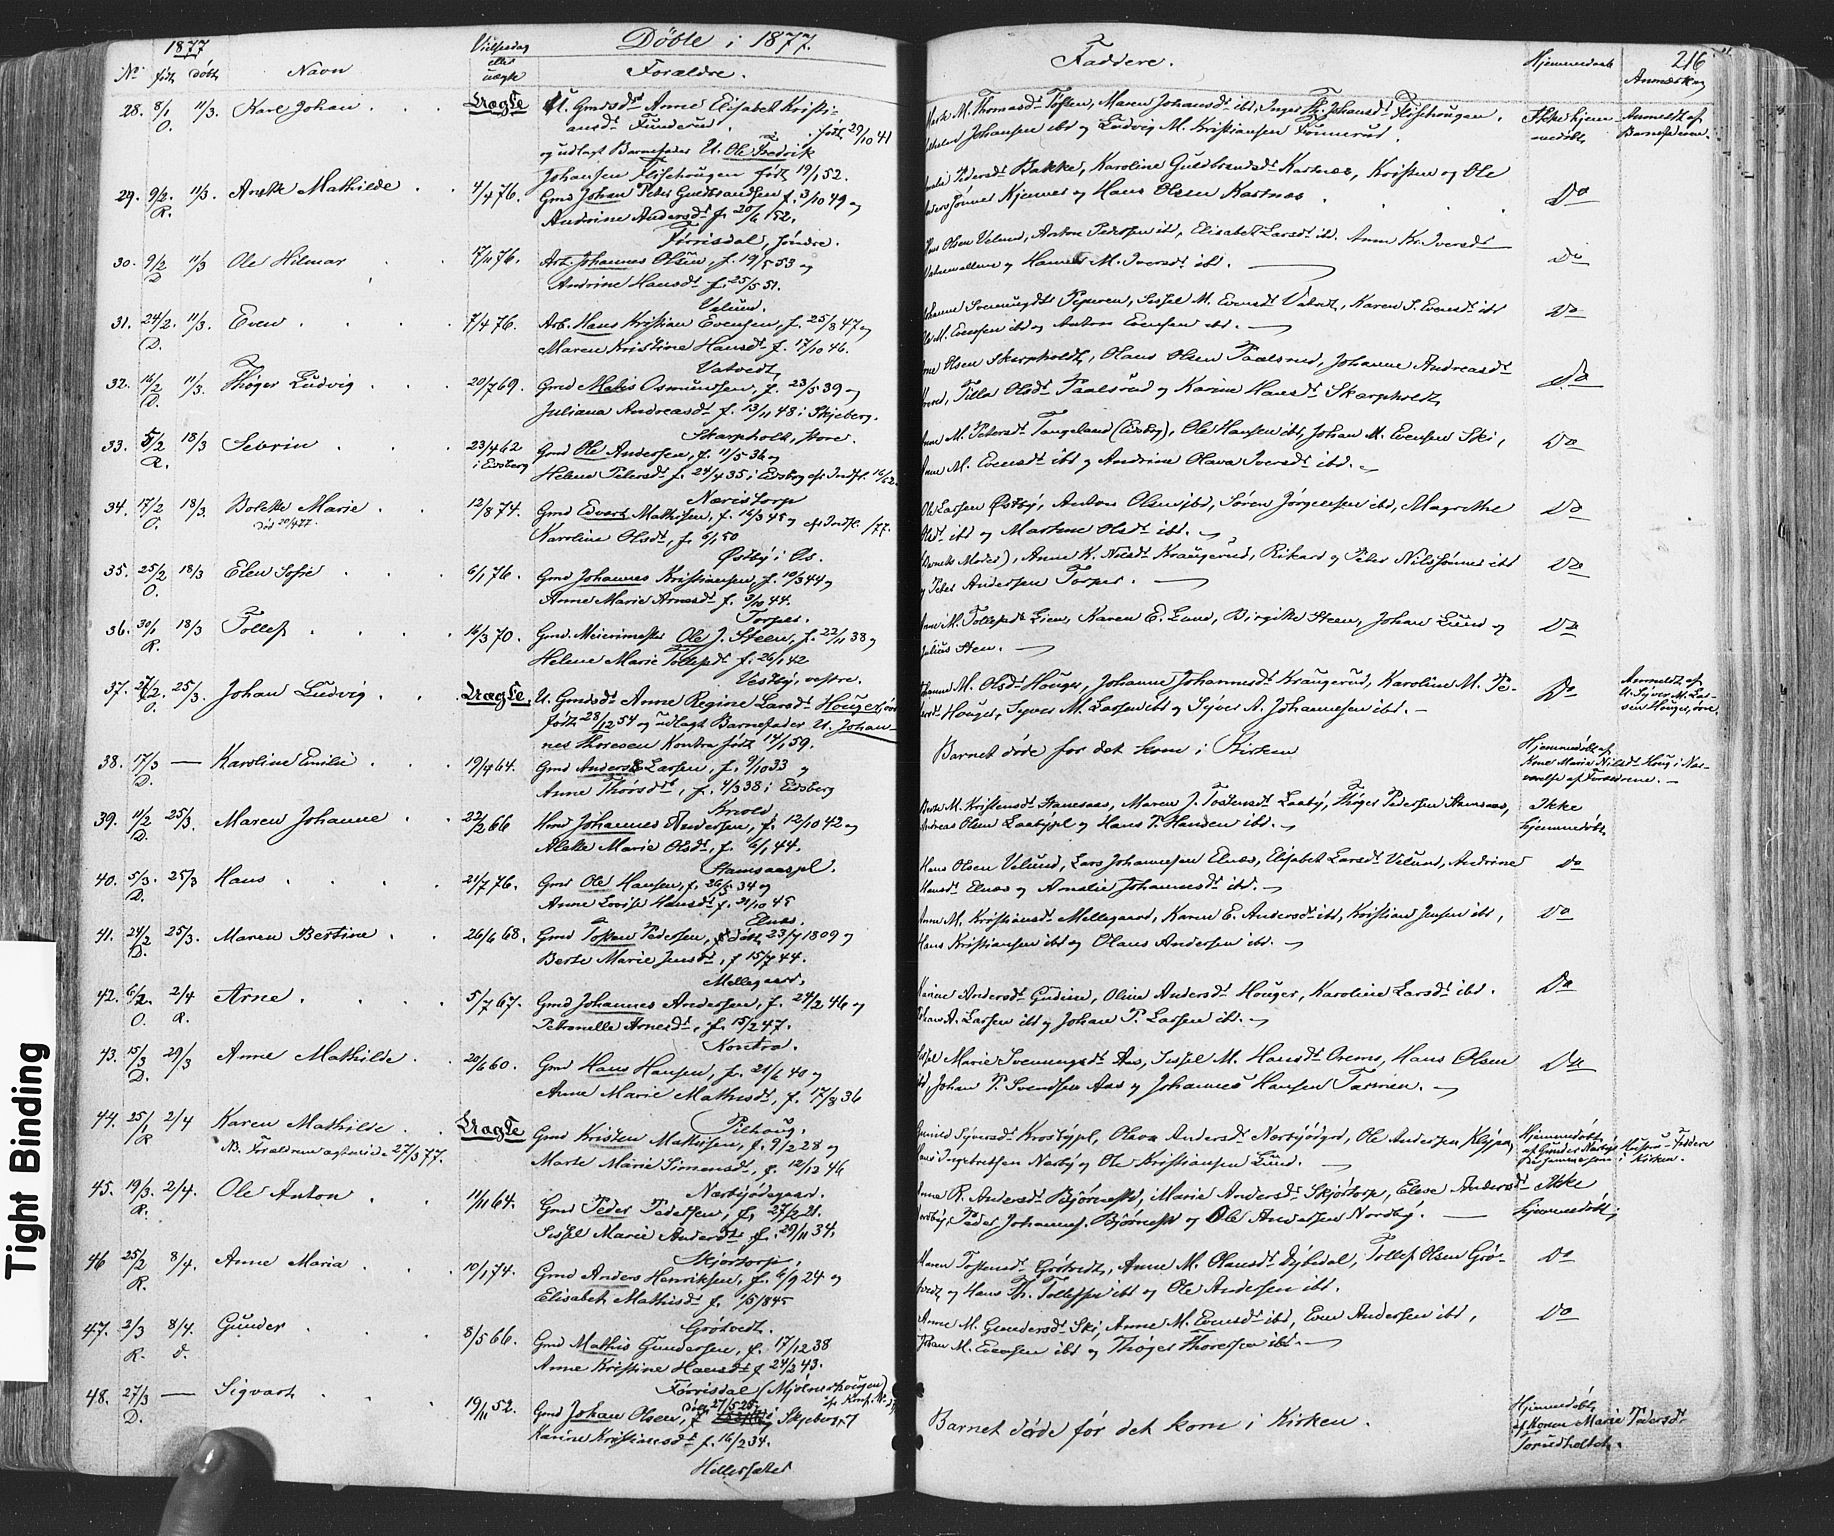 1877
Døbte i 1877.
Faddere.
216
No født døbt Navn
Vielsesdag eller uægte
Forældre.
Hjemmedøbt
Anmærkn
28. 8/1 O. 11/3. Karl Johan . . . Uægte U. Gmdsdt Anne Elisabet Kristi-
ansdt Funderud. født 29/10 41
og udlagt Barnefader U. Ole Fredrik
Johansen født 19/1 52.
Ikke hjemmedøbt
Anmeldt af Barnefaderen.
29. 9/2. R. 11/3. Mathilde . . 4/4 76. Gmd Johan Peter Guldbrandsen f. 3/10 49 og
Andrine Andersdt f. 20/6 52.
Førrisdal, søndre.
Pedersdt Bakke, Karoline Guldbrandsdt Kastnæs, Kristen og Ole
og Hans Olsen Kastnæs
Do
30. 9/2 D 11/3 Ole Hilmar . . 17/11 76. Arb. Johannes Olsen, f. 19/5 53 og
Andrine Hansdt f. 25/5 51.
Velund.
Olsen Velund, Anton Pedersen ibd, Elisabet Larsdt ibd. Anne Kr. Iversdt
og Hanna M. Iversdt ibd.
Do
31. 24/2. D. 11/3. Even . . . 7/4 76. Arb. Hans Kristian Evensen, f. 25/8 47 og
Maren Kristine Hansdt f. 17/10 46.
Vatvedt,
M. Evensen ibd og Anton Evensen ibd.
Do
32. 16/2 D. 11/3. Thøger Ludvig . . . 20/7 69. Gmd Mathis Osmundsen, f. 23/5 39 og
Juliana Andreasdt f. 13/11 48 i Skjeberg.
Skarpholt, store.
Olsen Skarpholdt, Olaus Olsen Paalsrud, Johanne Andreasdt
Tilla Olsdt Paalsrud og Karine Hansdt Skarpholdt
Do
33. 5/2 R. 18/3 Sevrin . . . 23/4 62 i Edsberg Gmd Ole Andersen, f. 11/5 36 og
Helene Petersdt f. 24/4 35 i Edsberg
Næristorp
M. Petersdt Tangeland (Edsberg), Ole Hansen ibd, Johan M. Evensen Ski,
Anne M. Evensdt ibd og Andrine Olava Iversdt ibd.
Do
34. 17/2 O. 18/3. Bolette Marie . . 12/8 74. Gmd Edvart Mathisen, f. 16/3 45 og
død 20/4 77.
Karoline Olsdt, f. 6/1 50
Østby i Os.
Ole Larsen Østby, Anton Olsen ibd, Søren Jørgensen ibd, Magrethe
Olsdt ibd og Martine Olsdt ibd.
Do
35. 25/2 O. 18/3 Elen Sofie . . . 6/1 76. Gmd Johannes Kristiansen, f. 10/3 44 og
Anne Marie Arnesdt f. 3/10 44.
Torper.
(Barnets Moder), Anne K. Nilsdt Kraugerud, Rikard og Peter Nilssønner ibd
og Peter Andersen Torper.
Do
36. 30/1 R. 18/3 Tollef . . . 16/3 70. Gmd. Meierimester Ole J. Steen, f. 22/11 38 og
Helene Marie Tollefsdt f. 26/1 42
Vestby, vestre.
M. Tollefsdt Lien, Karen E. Lund, Birgitte Steen, Johan Lund og
Julius Steen.
Do
37. 27/2. O. 25/3. Johan Ludvig . . Uægte. U. Gmdsdt Anne Regine Larsdt Houger,
født 28/12 54 og udlagt Barnefader U. Johan-
nes Thoresen Kontra født 14/1 59.
M. Olsdt Houger, Johanne Johannesdt Kraugerud, Karoline M. Pe-
Houger, Syver M. Larsen ibd og Syver A. Johannesen ibd.
Do
Anmeldt af U. Syver M. Larsen Houger,
38. 17/3 D. — Karoline Emilie . . 19/4 64. Gmd Anders Larsen, f. 9/10 33 og
Anne Thorsdt, f. 4/3 38 i Edsberg
Barnet døde før det kom i Kirken
Hjemmedøbt af
Kone Maria Nilsdt Houg i Nær-
værelse af Forældrene.
39. 11/2 D. 25/3. Maren Johanne . . 22/2 66 Gmd Johannes Andersen, f. 12/10 42 og
Alette Marie Olsdt, f. 6/1 44.
Stamsaaspl.
M. Kristensdt Stamsaas, Maren J. Tostensdt Laaby, Thøger Pedersen Stamsaas,
Andreas Olsen Laabypl og Hans P. Hansen ibd.
Ikke hjemmedøbt
40. 5/3. D. 25/3 Hans . . . 21/7 76. Gmd Ole Hansen, f. 34 og
Anne Lovise Hansdt f. 21/10 45
Elnæs.
Hans Olsen Velund, Lars Johannesen Elnæs, Elisabet Larsdt Velund, Andrine
Hansdt Elnæs og Amalie Johannesdt ibd.
Do
41. 24/2 D. 25/3. Maren Bertine . . 26/6 68. Gmd Tosten Pedersen, døbt 23/7 1809 og
Berte Marie Jensdt, f 15/7 44.
Mellegaard.
Anne M. Kristiansdt Mellegaard, Karen E. Andersdt ibd, Kristian Jensen ibd,
Hans Kristiansen ibd og Olaus Andersen ibd.
Do
42. 6/2. O. 2/4 R. Arne . . . 5/7 67. Gmd Johannes Andersen, f. 24/2 46 og
Petronelle Arnesdt, f. 15/2 47.
Kontra.
Andersdt Gudine, Oline Andersdt Houger, Karoline Larsdt ibd.
Johan A. Larsen ibd og Johan P. Larsen ibd.
Do
43. 15/3 D. 29/3 Anne Mathilde . . 20/6 60. Gmd Hans Hansen, f. 21/6 40 og
Anne Marie Mathisdt, f. 17/8 36
Pilhaug.
Marie Svenningsdt Aas, Sissel M. Hansdt Orems, Hans Olsen
ibd, Johan P. Svendsen Aas og Johannes Hansen
Do
44. 25/1 R 2/4 Karen Mathilde . . Uægte Gmd Kristen Mathisen, f. 9/2 28 og
NB. Forældrene ægteviede 27/3 77.
Marte Marie Simensdt, f. 12/12 46
Narbyødegaard.
Syversdt Krosbypl, Olava Andersdt Narbyødgrd, Ole Andersen
Ingebretsen Narby og Ole Kristiansen Lund.
Hjemmedøbt af Gunder Narby
Faddere i Kirken.
45. 19/3. R. 2/4. Ole Anton . . 11/11 64. Gmd Peder Pedersen, f. 27/2 21.
Sissel Marie Andersdt f. 29/11 34.
Skjørtorp.
Anne R. Andersdt Bjørnestd, Marie Andersdt Skjørtorp, Elese Andersdt
Nordby, Peder Johannes. Bjørnestd og Ole Andersen Nordby.
Ikke hjemmedøbt
46 25/2 R. 8/4. Anne Maria . . . 10/1 74. Gmd Anders Henriksen, f. 6/9 24 og
Elisabet Mathisdt f. 15/8 45
Grøtvedt.
Maren Tostensdt Grøtvedt, Anne M. Olausdt Dybedal, Tollef Olsen Grøt-
vedt og Hans Th. Tollefsen ibd og Ole Andersen ibd.
Do
47. 2/3 R. 8/4. d. Gunder . . 8/5 66. Gmd Mathis Gundersen, f. 17/12 38
Anne Kristine Hansdt f 24/2 43.
Førrisdal (Mjølnerhougen)
Anne M. Gundersdt Ski, Anne M. Evensdt ibd, Even Andersen ibd,
Johan M. Evensen ibd og Thøger Thoresen ibd.
Do
48. 27/3 D. — Sigvart . . 19/11 52. Gmd Johan Olsen, f døbt 27/5 25 i Skjeberg
Karine Kristiansdt f. 16/2 34.
Hillersæter
Barnet døde før det kom i Kirken.
Hjemmedøbt
af Karen Marie Pedersdt
Torudholtet.
Tight Binding